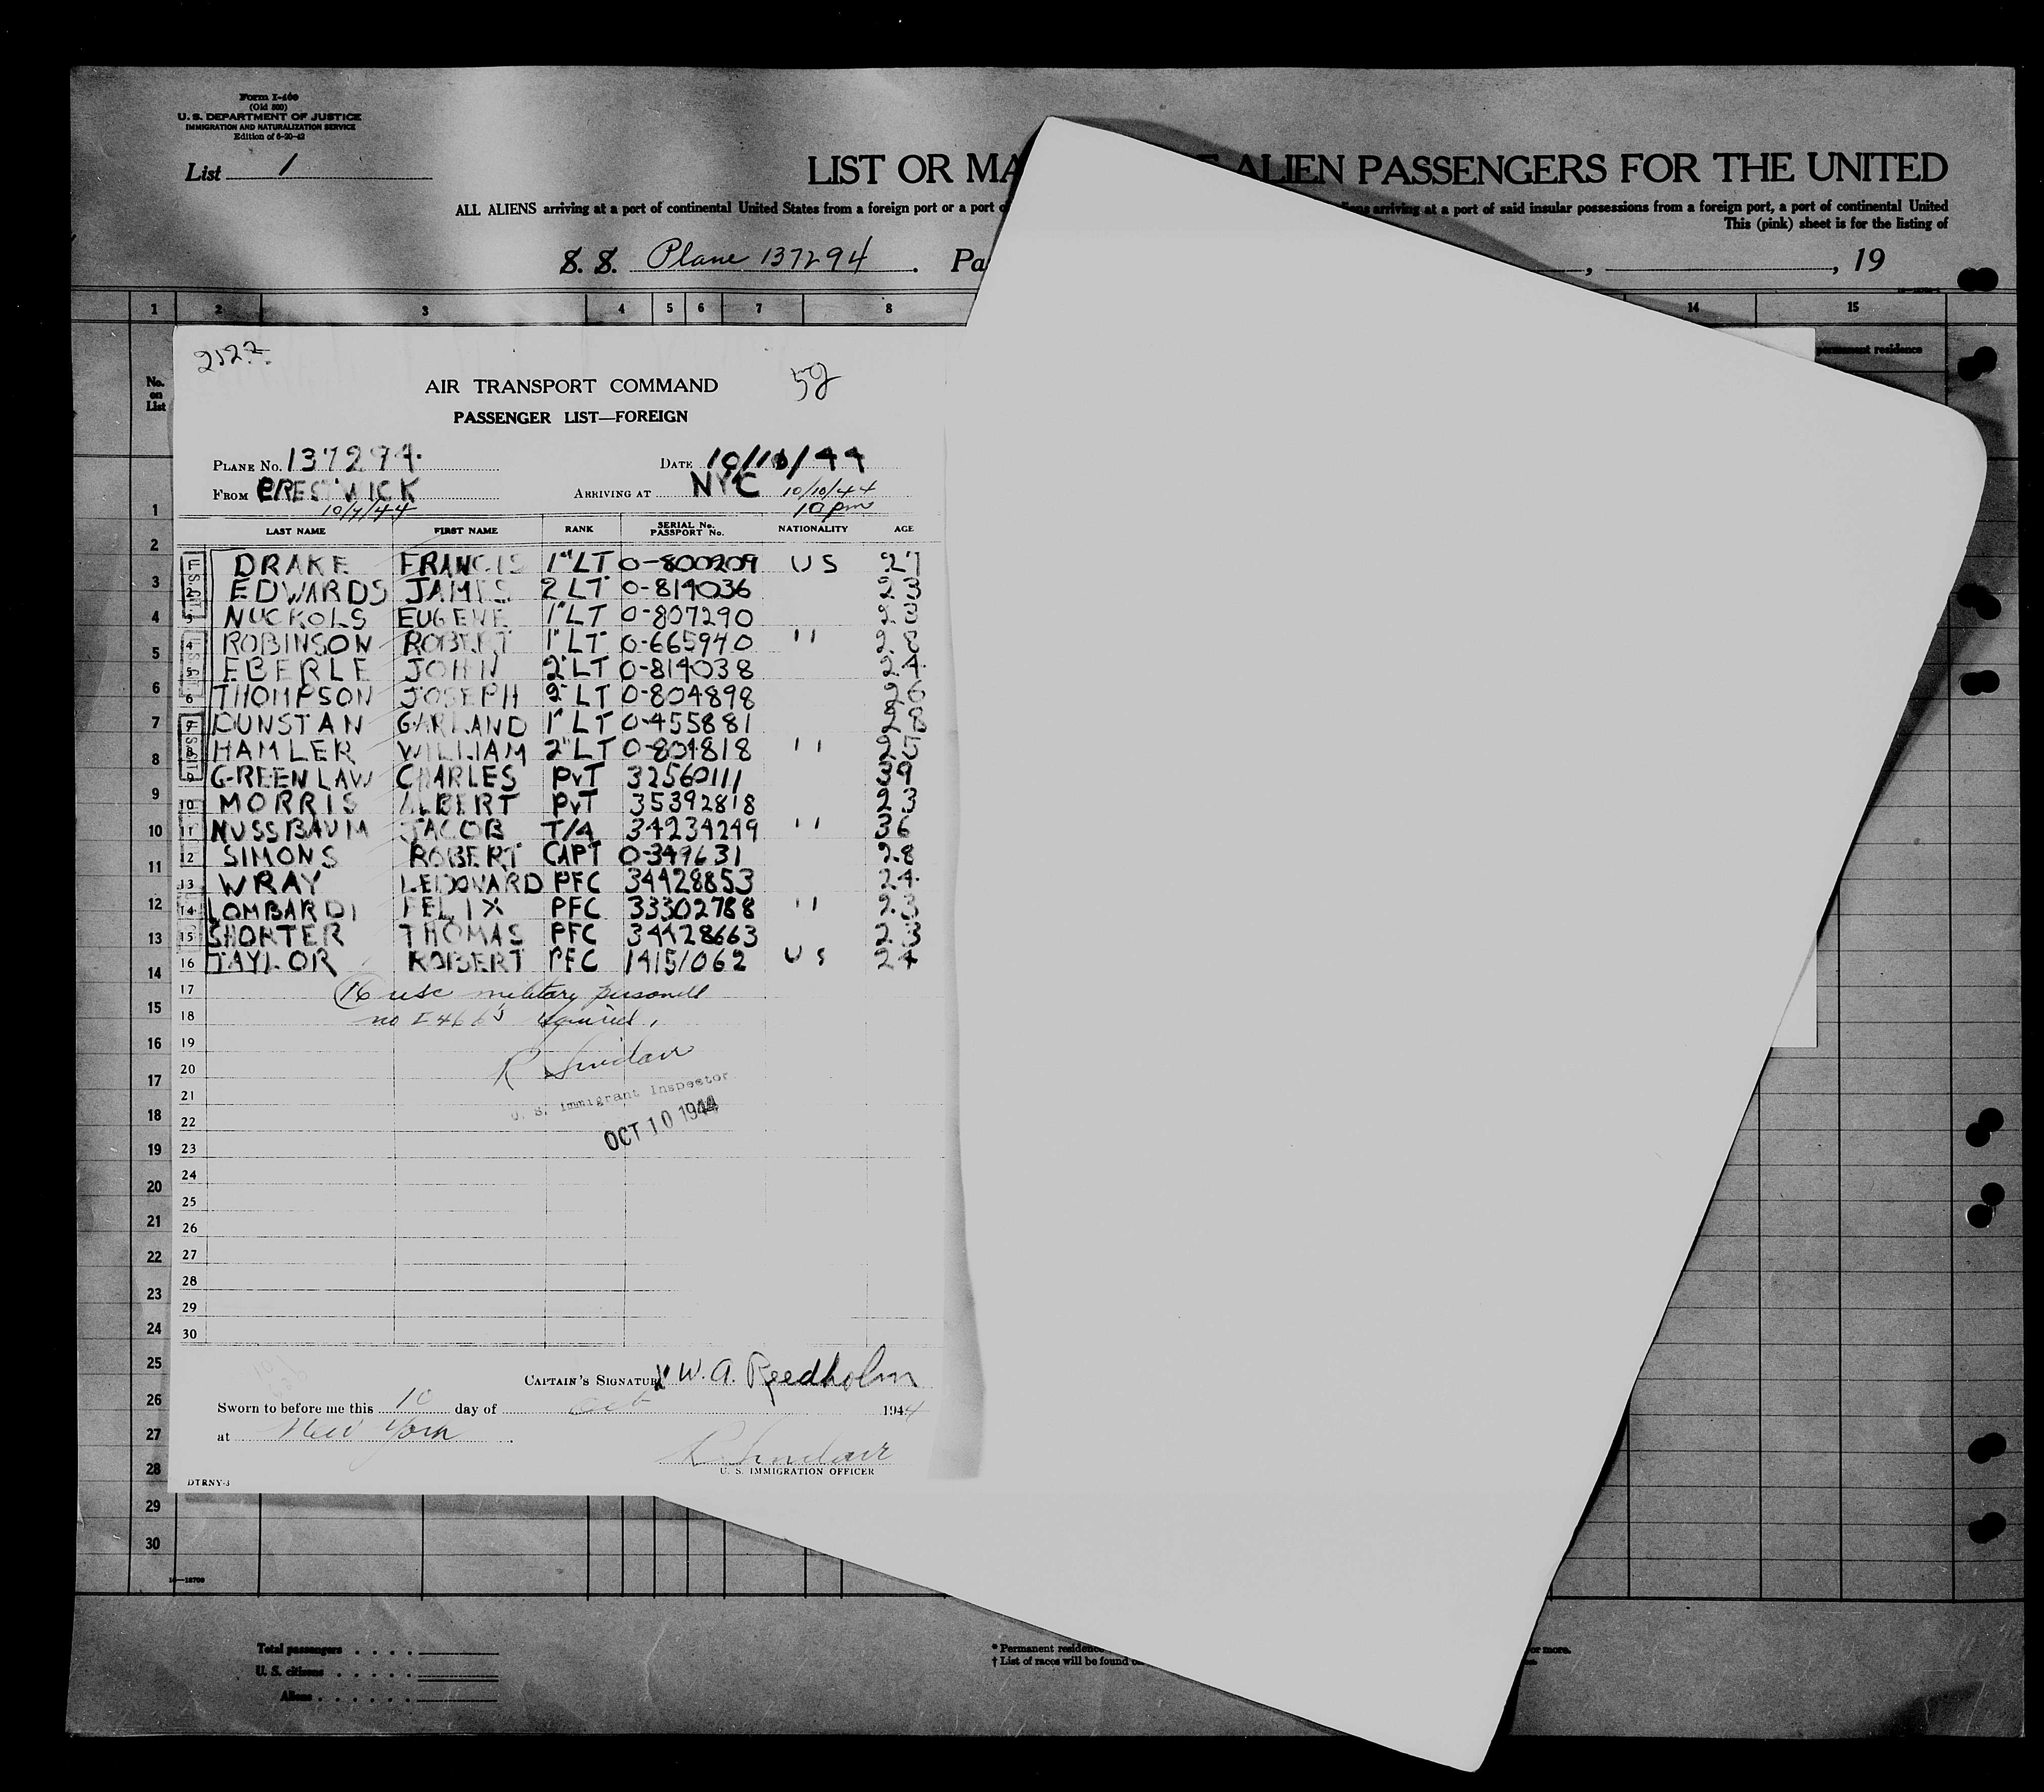 Form I-466
(Old 500)
U. S. DEPARTMENT OF JUSTICE
IMMIGRATION AND NATURALIZATION SERVICE
Edition of 6-20-42
List 1
LIST OR MA ALIEN PASSENGERS FOR THE UNITED
ALL ALIENS arriving at a port of continental United States from a foreign port or a port o arriving at a port of said insular possessions from a foreign port, a port of continental United
This (pink) sheet is for the listing of
S. S. Plane 137294 . Pa , , 19
1 2 3 4 5 6 7 8 14 15
permanent residence
No. on List
AIR TRANSPORT COMMAND
PASSENGER LIST—FOREIGN
PLANE No. 137294 DATE 10/10/44
FROM PRESTWICK ARRIVING AT NYC 10/10/44
10/9/44 10 pm
LAST NAME FIRST NAME RANK SERIAL No. PASSPORT No. NATIONALITY AGE
DRAKE FRANCIS 1"LT 0-800209 US 27
2 EDWARDS JAMES 2 LT 0-814036 23
3 NUCKOLS EUGENE 1"LT 0-807290 23
4 ROBINSON ROBERT 1"LT 0-665940 '' 28
5 EBERLE JOHN 2"LT 0-814038 24
6 THOMPSON JOSEPH 2"LT 0-804898 26
7 DUNSTAN GARLAND 1"LT 0-455881 28
8 HAMLER WILLIAM 2"LT 0-804818 ''
9 GREENLAW CHARLES PVT 32560111 39
10 MORRIS ALBERT PVT 35392818 23
11 NUSSBAUM JACOB T/4 34234249 '' 36
12 SIMONS ROBERT CAPT 0-349631 28
13 WRAY LEIDONARD PFC 34428853 24
14 LOMBARDI FELIX PFC 33302788 '' 23
15 SHORTER THOMAS PFC 34428663 23
16 TAYLOR ROBERT PFC 14151062 US 24
17 16 usc military personell
18 no I 466's required.
19
20 R Sinclair
21 U. S. Immigrant Inspector
22 OCT 10 1944
23
24
25
26
27
28
29
30
CAPTAIN'S SIGNATURE W. A. Reedholm
Sworn to before me this 10 day of Oct 1944
at New York
R Sinclair
U. S. IMMIGRATION OFFICER
DTRNY-3
1
2
3
4
5
6
7
8
9
10
11
12
13
14
15
16
17
18
19
20
21
22
23
24
25
26
27
28
29
30
Total passengers
U. S. citizens
Aliens
* Permanent residence or more.
† List of races will be found